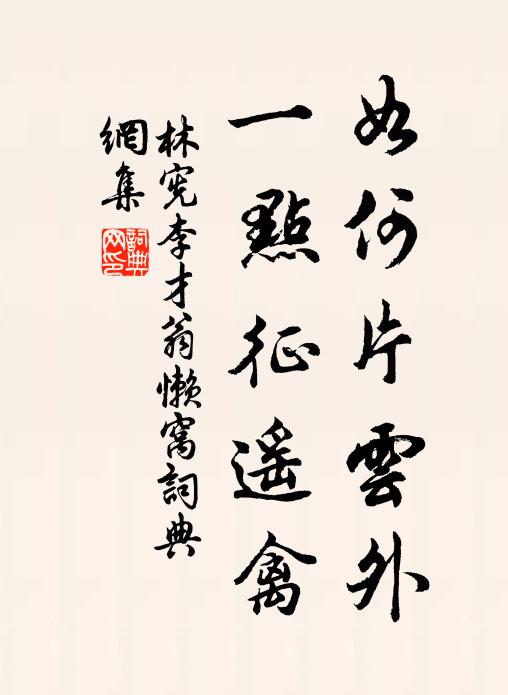 如何片雲外
一點征遥禽
林宪李才翁懒窩詞典
網集
詞典
网印